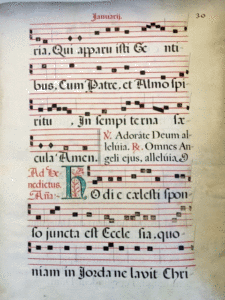 Januarij. 30
ria, Qui apparu isti Ge nti
bus, Cum Patre, et Almo spi
ritu, In sempi terna sæ
cula Amen.
℣. Adorate Deum al
leluia. ℟. Omnes An
geli ejus, alleluia
Ad Be
nedictus.
Aña.
Ho di e cælesti spon
so juncta est Eccle sia, quo
niam in Jorda ne lavit Chri